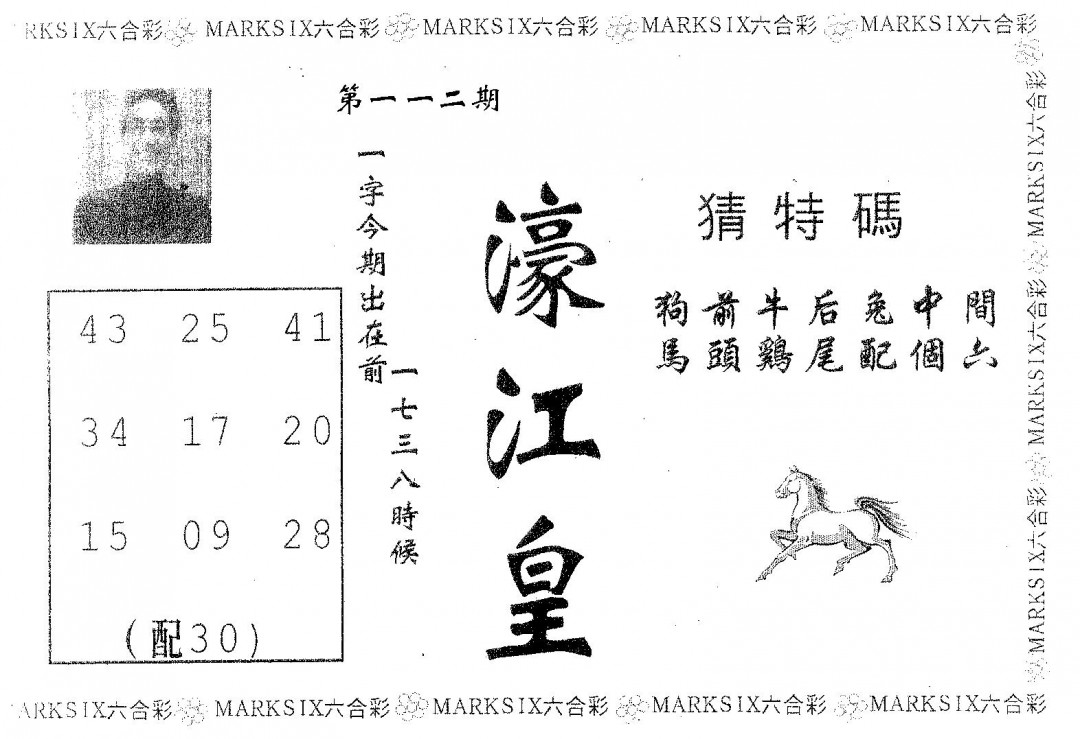 RKSIX六合彩 MARKSIX六合彩 MARKSIX六合彩 MARKSIX六合彩 MARKSIX六合彩
第一一二期
一字今期出在前
一七三八時候
濠江皇
猜特碼
狗前牛后兔中間
馬頭鷄尾配個六
43 25 41
34 17 20
15 09 28
(配30)
MARKSIX六合彩 MARKSIX六合彩 MARKSIX六合彩
ARKSIX六合彩 MARKSIX六合彩 MARKSIX六合彩 MARKSIX六合彩 MARKSIX六合彩